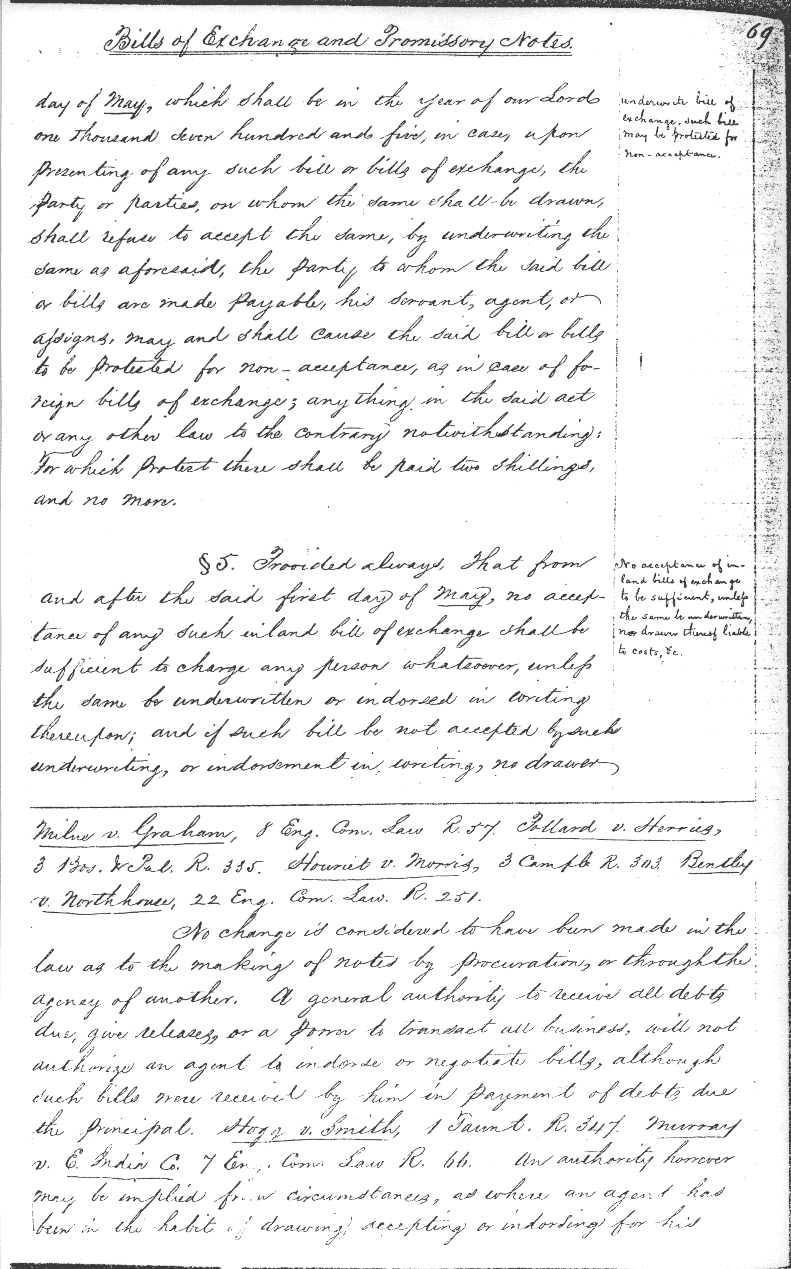 Bills of Exchange and Promissory Notes.
69
day of May, which shall be in the year of our Lord
one thousand seven hundred and five, in case, upon
presenting of any such bill or bills of exchange, the
party or parties, on whom the same shall be drawn,
shall refuse to accept the same, by underwriting the
same as aforesaid, the party to whom the said bill
or bills are made payable, his servant, agent, or
assigns, may and shall cause the said bill or bills
to be protested for non-acceptance, as in case of fo-
reign bills of exchange; anything in the said act
or any other law to the contrary notwithstanding:
For which protest there shall be paid two shillings,
and no more.
underwrite bill of
exchange, such bill
may be protested for
non-acceptance.
§5. Provided always, That from
and after the said first day of May, no accep-
tance of any such inland bill of exchange shall be
sufficient to charge any person whatsoever, unless
the same be underwritten or indorsed in writing
thereupon; and if such bill be not accepted by such
underwriting, or indorsement in writing, no drawer
No acceptance of in-
land bills of exchange
to be sufficient, unless
the same be underwritten,
nor drawer thereof liable
to costs, &c.
Milne v. Graham, 8 Eng. Com. Law R. 57. Pollard v. Herries,
3 Bos. & Pul. R. 335. Houriet v. Morris, 3 Campb. R. 303. Bentley
v. Northhouse, 22 Eng. Com. Law. R. 251.
No change is considered to have been made in the
law as to the making of notes by procuration, or through the
agency of another. A general authority to receive all debts
due, give releases, or a power to transact all business, will not
authorize an agent to indorse or negotiate bills, although
such bills were received by him in payment of debts due
the principal. Hogg v. Smith, 1 Taunt. R. 347. Murray
v. E. India Co. 7 Eng. Com. Law R. 66. An authority however
may be implied from circumstances, as where an agent has
been in the habit of drawing, accepting or indorsing for his